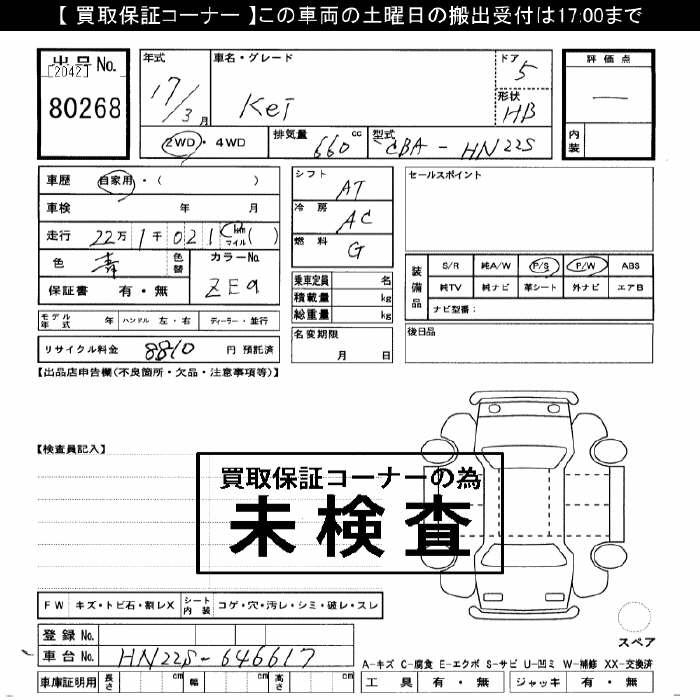 【 買取保証コーナー 】この車両の土曜日の搬出受付は17:00まで
出品No.
[2042]
80268
年式
17/3 月
車名・グレード
Kei
ドア
5
形状
HB
2WD ・ 4WD
排気量
660 cc
型式
CBA - HN22S
評価点
—
内装
車歴 自家用・( )
車検 年 月
走行 22万 1千 021 km マイル ( )
色 青
色替
カラーNo.
ZE9
保証書 有・無
シフト AT
冷房 AC
燃料 G
乗車定員 名
積載量 kg
総重量 kg
セールスポイント
装備品
S/R 純A/W P/S P/W ABS
純TV 純ナビ 革シート 外ナビ エアB
ナビ型番:
モデル年式 年 ハンドル 左・右 ディーラー・並行
名変期限
月 日
後日品
リサイクル料金 8810 円 預託済
【出品店申告欄(不良箇所・欠品・注意事項等)】
【検査員記入】
買取保証コーナーの為
未検査
FW キズ・トビ石・割レX シート内装 コゲ・穴・汚レ・シミ・破レ・スレ
スペア
登録No.
車台No. HN22S-646617
A-キズ C-腐食 E-エクボ S-サビ U-凹ミ W-補修 XX-交換済
車庫証明用 長さ cm 幅 cm 高さ cm
工具 有・無 ジャッキ 有・無